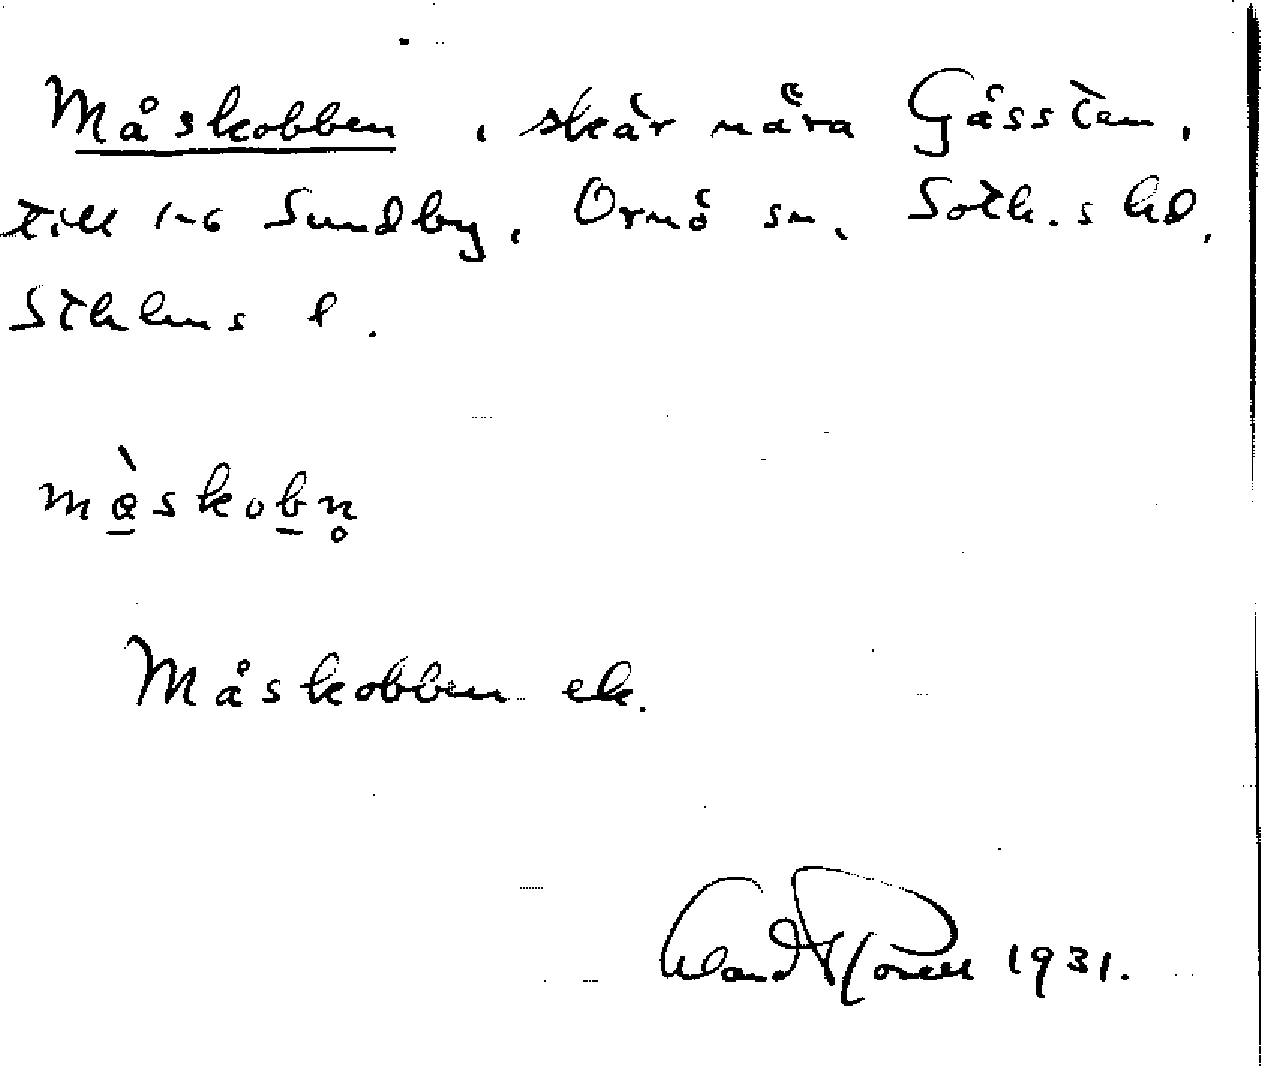 Måskobben, skär nära Gåssten,
till 1-6 Sundby, Ornö sn, Soth.s hd,
Sthlms l.
màskobn̥
Måskobben ek.
1931.